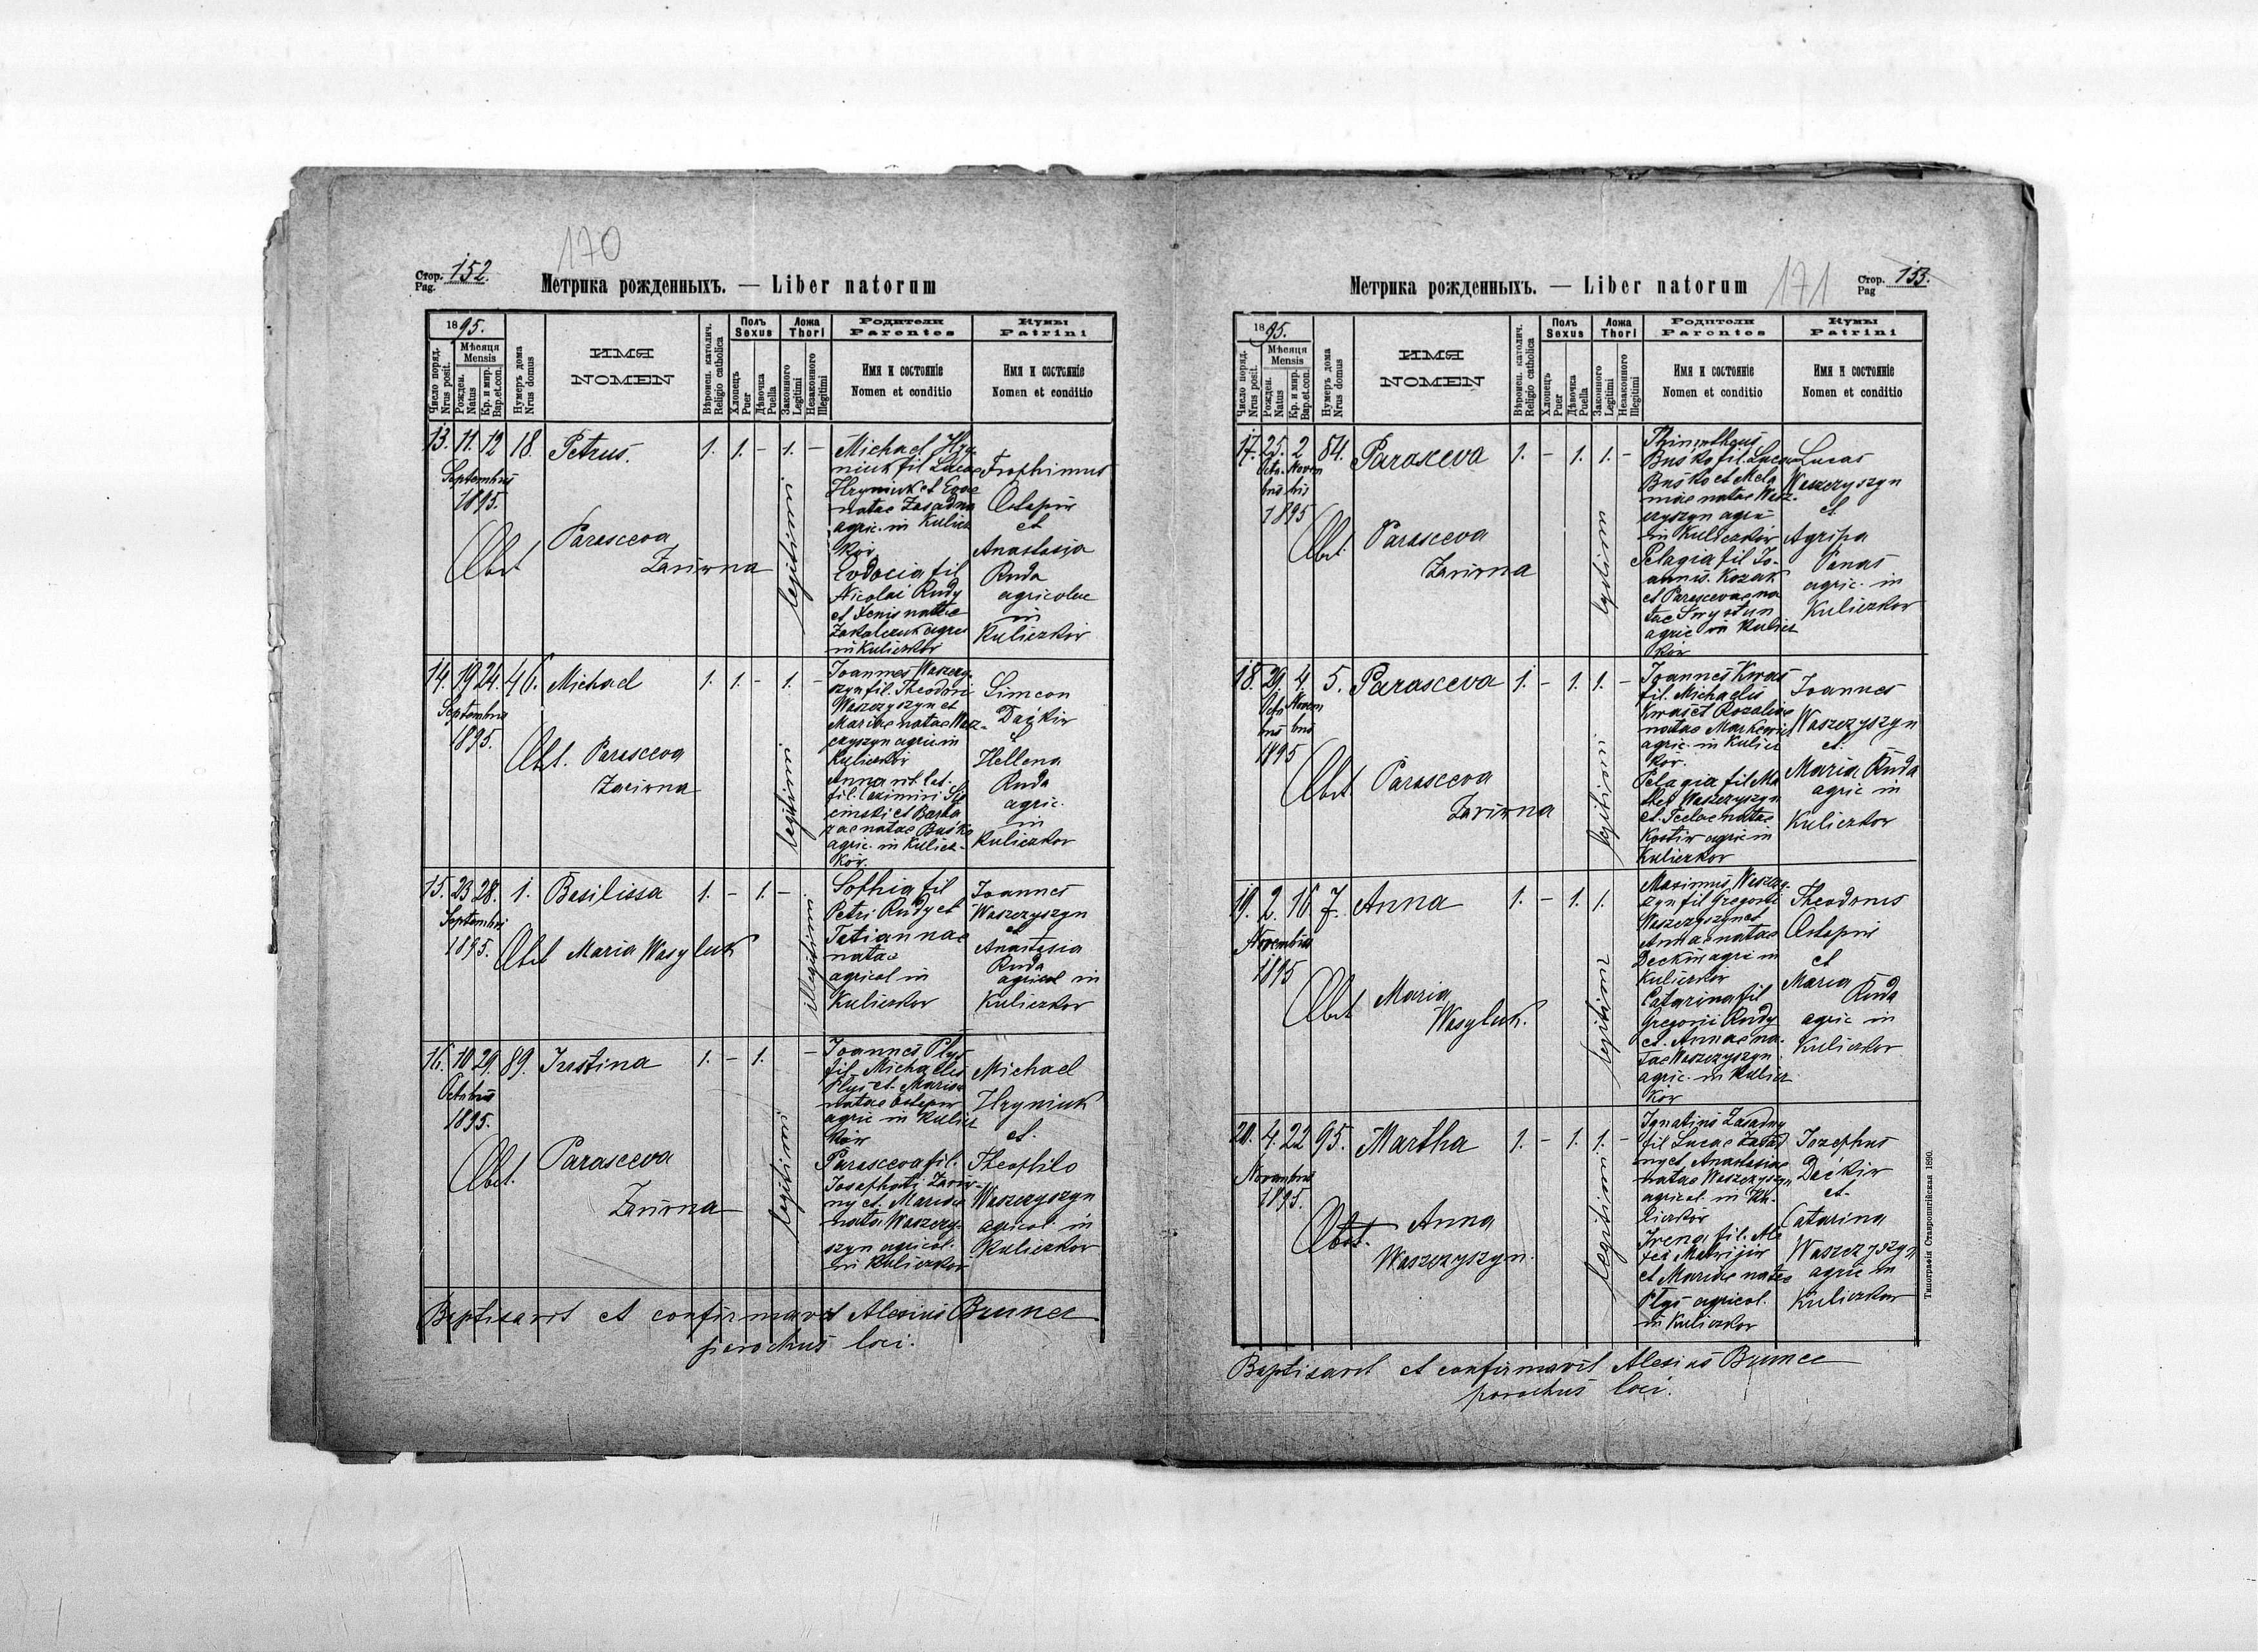 170
Стор. 152.
Pag.
Метрика рожденныхъ. — Liber natorum
1895.
Число поряд.
Nrus posit.
Мѣсяця
Mensis
Рожден.
Natus
Кр. и мир.
Bap.et.con.
Нумеръ дома
Nrus domus
ИМЯ
NOMEN
Вѣроисп. католич.
Religio catholica
Полъ
Sexus
Хлопець
Puer
Дѣвочка
Puella
Ложа
Thori
Законного
Legitimi
Незаконного
Illegitimi
Родители
Parentes
Имя и состоянiе
Nomen et conditio
Кумы
Patrini
Имя и состоянiе
Nomen et conditio
13. 11. 12 18. Petrus. 1. 1. – 1. –
Septembris
1895.
Obst. Parasceva
Zarirna
legitimi
Michael Hry-
niuk fil Lucae
Hryniuk et Evae
natae Zasadna
agric. in Kulicz
kow
Eudocia fil
Nicolai Rudy
et Xenis natae
agric
in Kuliczkow
Trophimus
Ostapiw
et
Anastasia
Ruda
agricolae
in
Kuliczkow
14. 19 24. 46. Michael 1. 1. – 1. –
Septembris
1895.
Obst. Parasceva
Zarirna
legitimi
Joannes Waszczy-
szyn fil. Theodori
Waszczyszyn et
Mariae natae Wasz-
czyszyn agric in
Kuliczkow
Anna rit. lat.
fil. Cazimiri
et Barba
rae natae Buśko
agric. in Kulicz-
kow.
Simeon
Daćkiw
et
Hellena
Ruda
agric.
in
Kuliczkow
15. 23 28. 1. Basilissa 1. – 1. –
Septembris
1895.
Obst Maria Wasyluk
illegitimi
Sophia fil
Petri Rudy et
Tatiannae
natae
agricol in
Kuliczkow
Joannes
Waszczyszyn
et
Anastasia
Ruda
agricol in
Kuliczkow
16. 10 29. 89. Justina 1. – 1. –
Octobris
1895.
Obst. Parasceva
Zarirna
legitimi
Joannes Plys
fil. Michaelis
Plys et. Mariae
natae Ostapiw
agric in Kulicz
kow
Parasceva fil.
Josaphati Zarir-
ny et. Mariae
natae Waszczy-
szyn agricol.
in Kuliczkow
Michael
Hryniuk
et.
Theophila
Waszczyszyn
agricol. in
Kuliczkow
Baptisavit et confirmavit Alexius Bunce
parochus loci.
Метрика рожденныхъ. — Liber natorum
171
Стор. 153.
Pag
1895.
Число поряд.
Nrus posit.
Мѣсяця
Mensis
Рожден.
Natus
Кр. и мир.
Bap.et.con.
Нумеръ дома
Nrus domus
ИМЯ
NOMEN
Вѣроисп. католич.
Religio catholica
Полъ
Sexus
Хлопець
Puer
Дѣвочка
Puella
Ложа
Thori
Законного
Legitimi
Незаконного
Illegitimi
Родители
Parentes
Имя и состоянiе
Nomen et conditio
Кумы
Patrini
Имя и состоянiе
Nomen et conditio
17. 25. 2 84. Parasceva 1. – 1. 1. –
Octo- Novem
bris bris
1895
Obst. Parasceva
Zarirna
legitimi
Buśko fil. Lucae
Buśko et Mela
niae natae Wasz-
czyszyn agric
in Kuliczkow
Pelagia fil Jo-
annis. Kozak
et Parascevae na
tae Swystun
agric in Kulicz
kow
Lucas
Waszczyszyn
et.
Agripa
Panas
agric. in
Kuliczkow
18. 29 4. 5. Parasceva 1. – 1. 1. –
Octo Novem
bris bris
1895
Obst. Parasceva
Zarirna
legitimi
Joannes Kwas
fil. Michaelis
Kwas et Rozaliae
natae Markewicz
agric. in Kulicz
kow.
Pelagia fil Ma
thei Waszczyszyn
et. Teclae natae
Kostiw agric in
Kuliczkow
Joannes
Waszczyszyn
et.
Maria Ruda
agric in
Kuliczkow
19. 2. 16 7. Anna 1. – 1. 1.
Novembris
1895
Obst Maria
Wasyluk.
legitimi
Maximus Waszczy-
szyn fil Gregorii
Waszczyszyn et
Annae natae
Deckiw agric in
Kuliczkow
Catarina fil
Gregorii Rudy
et. Annae na-
tae Waszczyszyn
agric. in Kulicz
kow
Theodorus
Ostapiw
et
Maria
Ruda
agric in
Kuliczkow
20. 4. 22 95. Martha 1. – 1. 1. –
Novembris
1895.
Obst. Anna
Waszczyszyn.
legitimi
Ignatius Zasadny
fil Lucae Zasad
ny et. Anastasiae
natae Waszczyszyn
agricol. in Ku-
liczkow
Irena fil. Ale
xei
et Mariae natae
Plys agricol.
in Kuliczkow
Jozephus
Daćkiw
et.
Catarina
Waszczyszyn
agric in
Kuliczkow
Baptisavit et confirmavit Alexius Bunce
parochus loci.
Типографiя Ставропигiйская 1890.